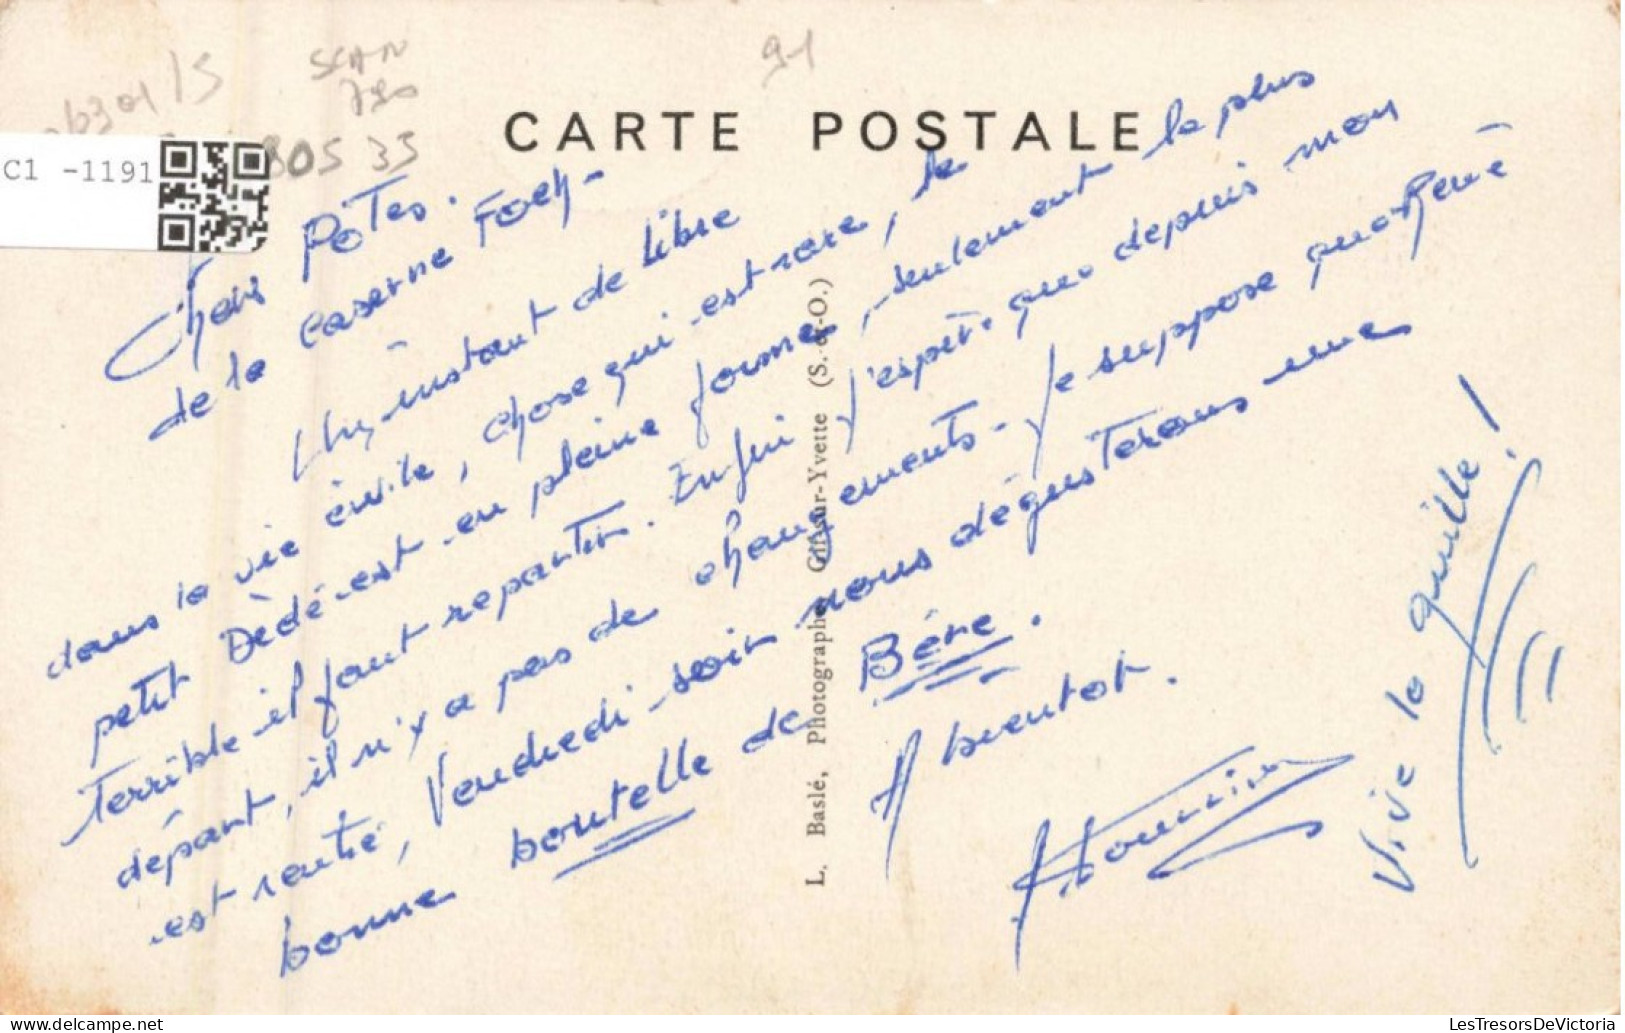 91
SCAN
C1 -1191
80S 35
CARTE POSTALE
Chers Pôtes.
de la caserne Foch-
Un instant de libre
dans la vie civile, chose qui est rare, le
petit Dédé est en pleine forme, seulement le plus
Terrible il faut repartir. Enfin j'espère que depuis mon
départ, il n'y a pas de changements. Je suppose que René
est rentré, Vendredi soir nous dégusterons une
bonne bouteille de Bière.
A bientot.
Vive la quille!
L. Baslé, Photographe Gif-sur-Yvette (S.-&-O.)
LesTresorsDeVictoria.com